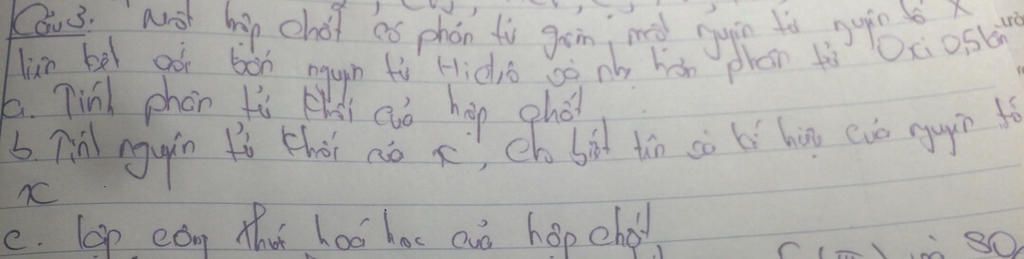 Câu 3. Một hợp chất có phân tử gồm một nguyên tử nguyên tố X
liên kết với bốn nguyên tử Hidrô và nhẹ hơn phân tử Oxi 0,5 lần
a. Tính phân tử khối của hợp chất
b. Tính nguyên tử khối của x, cho biết tên và kí hiệu của nguyên tố
x
c. lập công thức hoá học của hợp chất